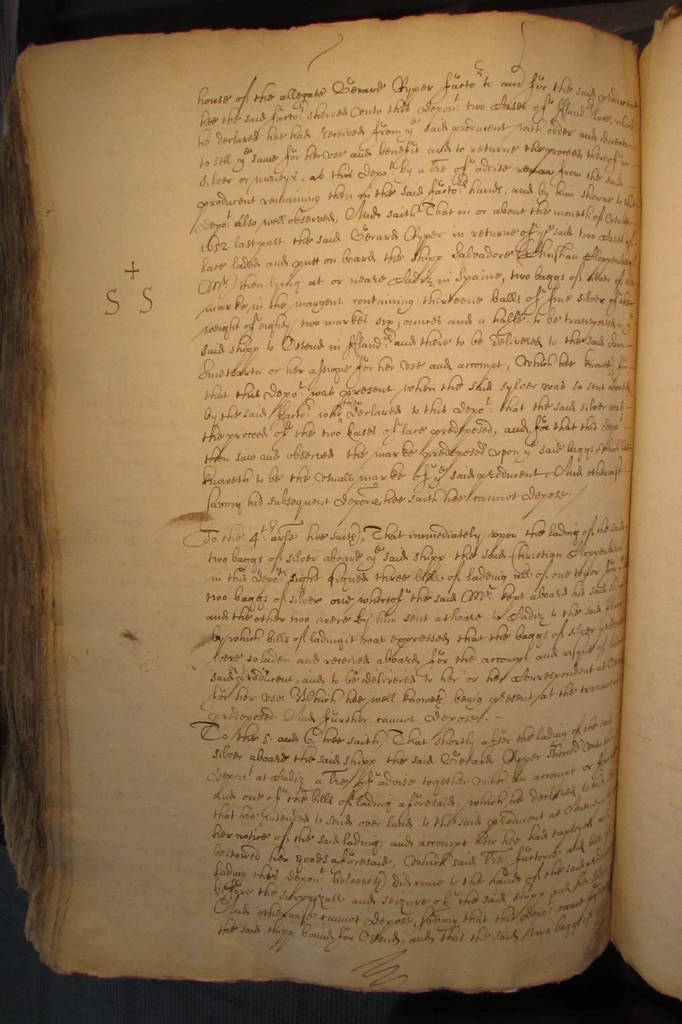 house of the allegate Gerard Ryper factor to and for the said producent
hee the said factor shewed unto this depon.t two Cases of ffland.rs lace, which
he declared hee had received from y.e said producent, with order and direction
to sell y.e same for her use and benefit and to returne the proceed thereof in
silver or moneys, as this depo.t by a l're of advise from the said
producent remaining then in the said factors hands, and by him shewne to this
depo.t also well observed, And saith That in or about the moneth of October
1652 last past the said Gerard Ryper in returne of y.e said two Cases of
lace laded and putt on board the shipp Salvadore (Christian
M.r) then lying at or neare Cadiz in Spaine, two baggs of silver of the
marke in the margent containing thirteene balls of fine silver of the
weight of eighty two markes six ounces and a halfe to be transported in y.e
said shipp to Ostend in ffland.rs and there to be delivered to the said
or her assigne for her use and accompt, Which hee knoweth for
that this depo.t was present when the said sylver was so sent aboard
by the said factor who then declared to this depo.t that the said silver was
the proceed of the two Cases of lace predeposed, and for that this depo.t
then saw and observed the marke predeposed upon y.e said baggs, which hee
knoweth to be the usuall marke of y.e said producent, And otherwise
saving his subsequent depon.s hee saith hee cannot depose.
✝
S S
To the 4.th ar'le hee saith, That immediately upon the lading of the said
two baggs of silver aboard y.e said shipp the said Christian
in this depo.ts sight signed three bills of lading all of one tenor for y.e
two baggs of silver one whereof the said M.r kept aboard his said shipp
and the other two were by him sent ashoare to Cadiz to the said
by which bills of lading it was expressed that the baggs of silver
were so laden and received aboard for the accompt and risque of the
said producent, and to be delivered to her or her Correspondent at Ostend
for her use Which hee well knoweth being present at the transaction
predeposed. And further cannot depose. -
To the 5 and 6 hee saith, That shortly after the lading of the said
silver aboard the said shipp the said Gerard Ryper shewed unto this
depon.t at Cadiz a l're of advise together with an accompt or factorie
and one of the bills of lading aforesaid, which he declared to this
that hee intended to send over land to the said producent at
her notice of the said lading, and accompt how hee had employed and
bestowed her goods aforesaid, Which said l're, factorie and bill of
lading this depon.t beleeveth did come to the hands of the said
before the surprizall and seizure of the said shipp and her
And otherwise cannot depose, saving that this depo.t came
the said shipp bound for Ostend, and that the said two baggs of